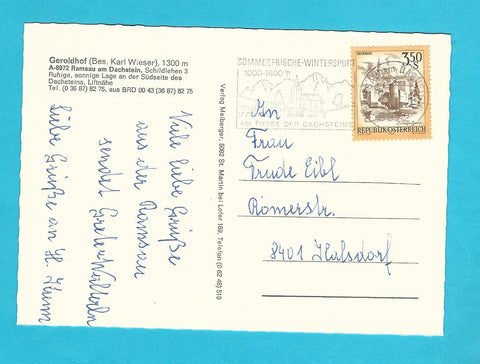 Geroldhof (Bes. Karl Wieser), 1300 m
A-8972 Ramsau am Dachstein, Schildlehen 3
Ruhige, sonnige Lage an der Südseite des
Dachsteins, Liftnähe
Tel. (0 36 87) 82 75, aus BRD 00 43 (36 87) 82 75
Viele liebe Grüße
aus der Ramsau
sendet
Liebe Grüße an H.
Verlag Melberger, 5092 St. Martin bei Lofer 169, Telefon (0 62 48) 519
SOMMERFRISCHE-WINTERSPORT
1000-1800 m
AM FUSSE DES DACHSTEINS
350
S
REPUBLIK ÖSTERREICH
An
Frau
Trude Eibl
Römerstr.
8401 Kalsdorf